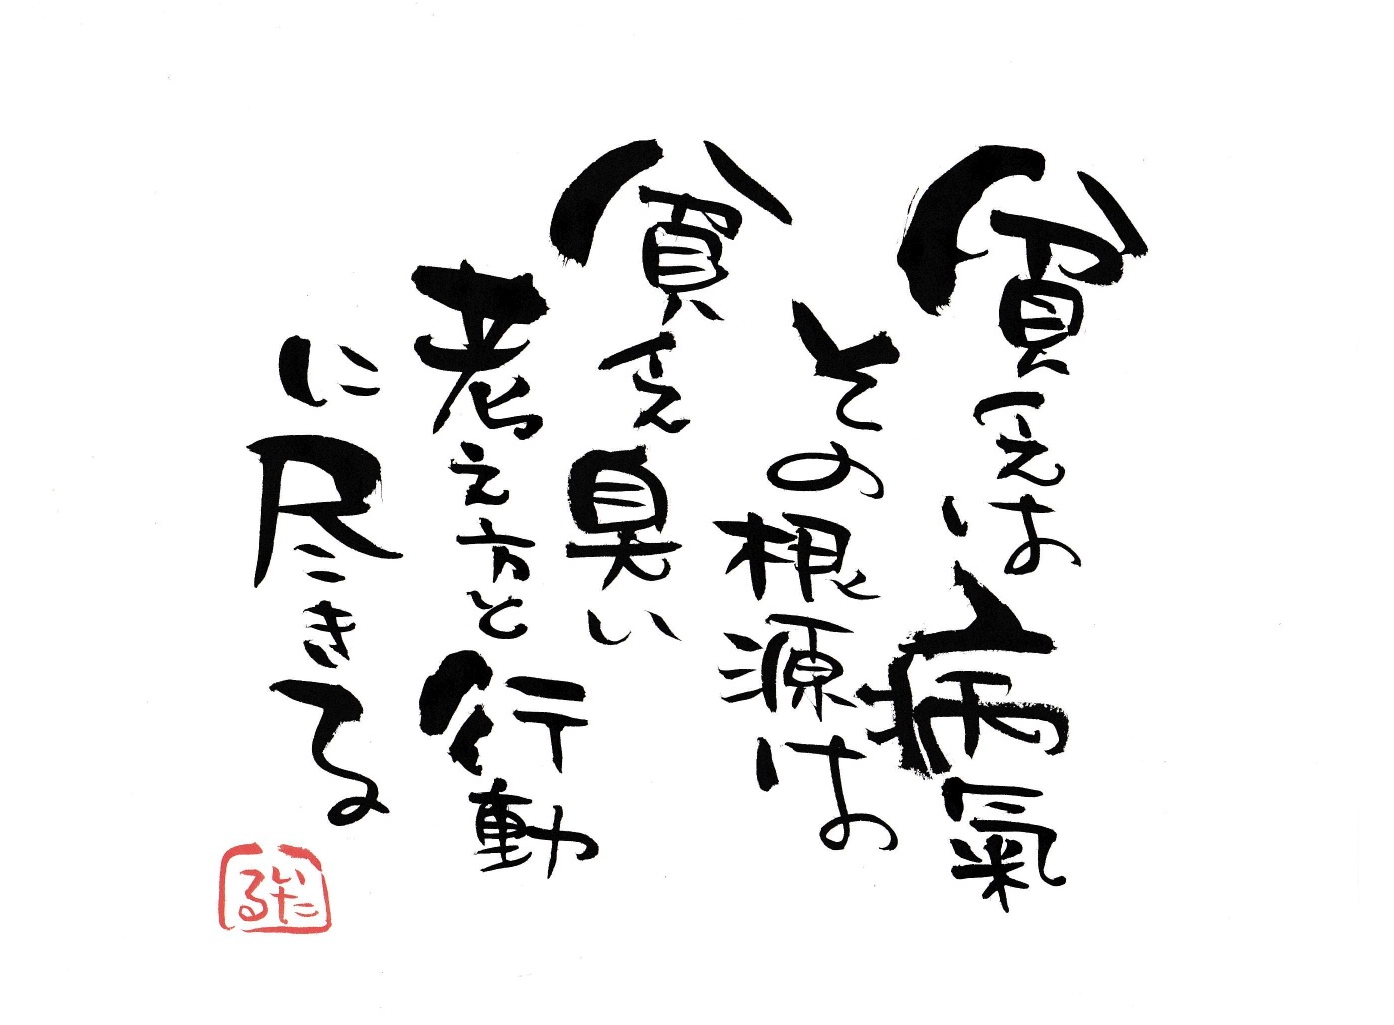 貧乏は病氣
その根源は
貧乏臭い
考え方と行動
に尽きる
いたる